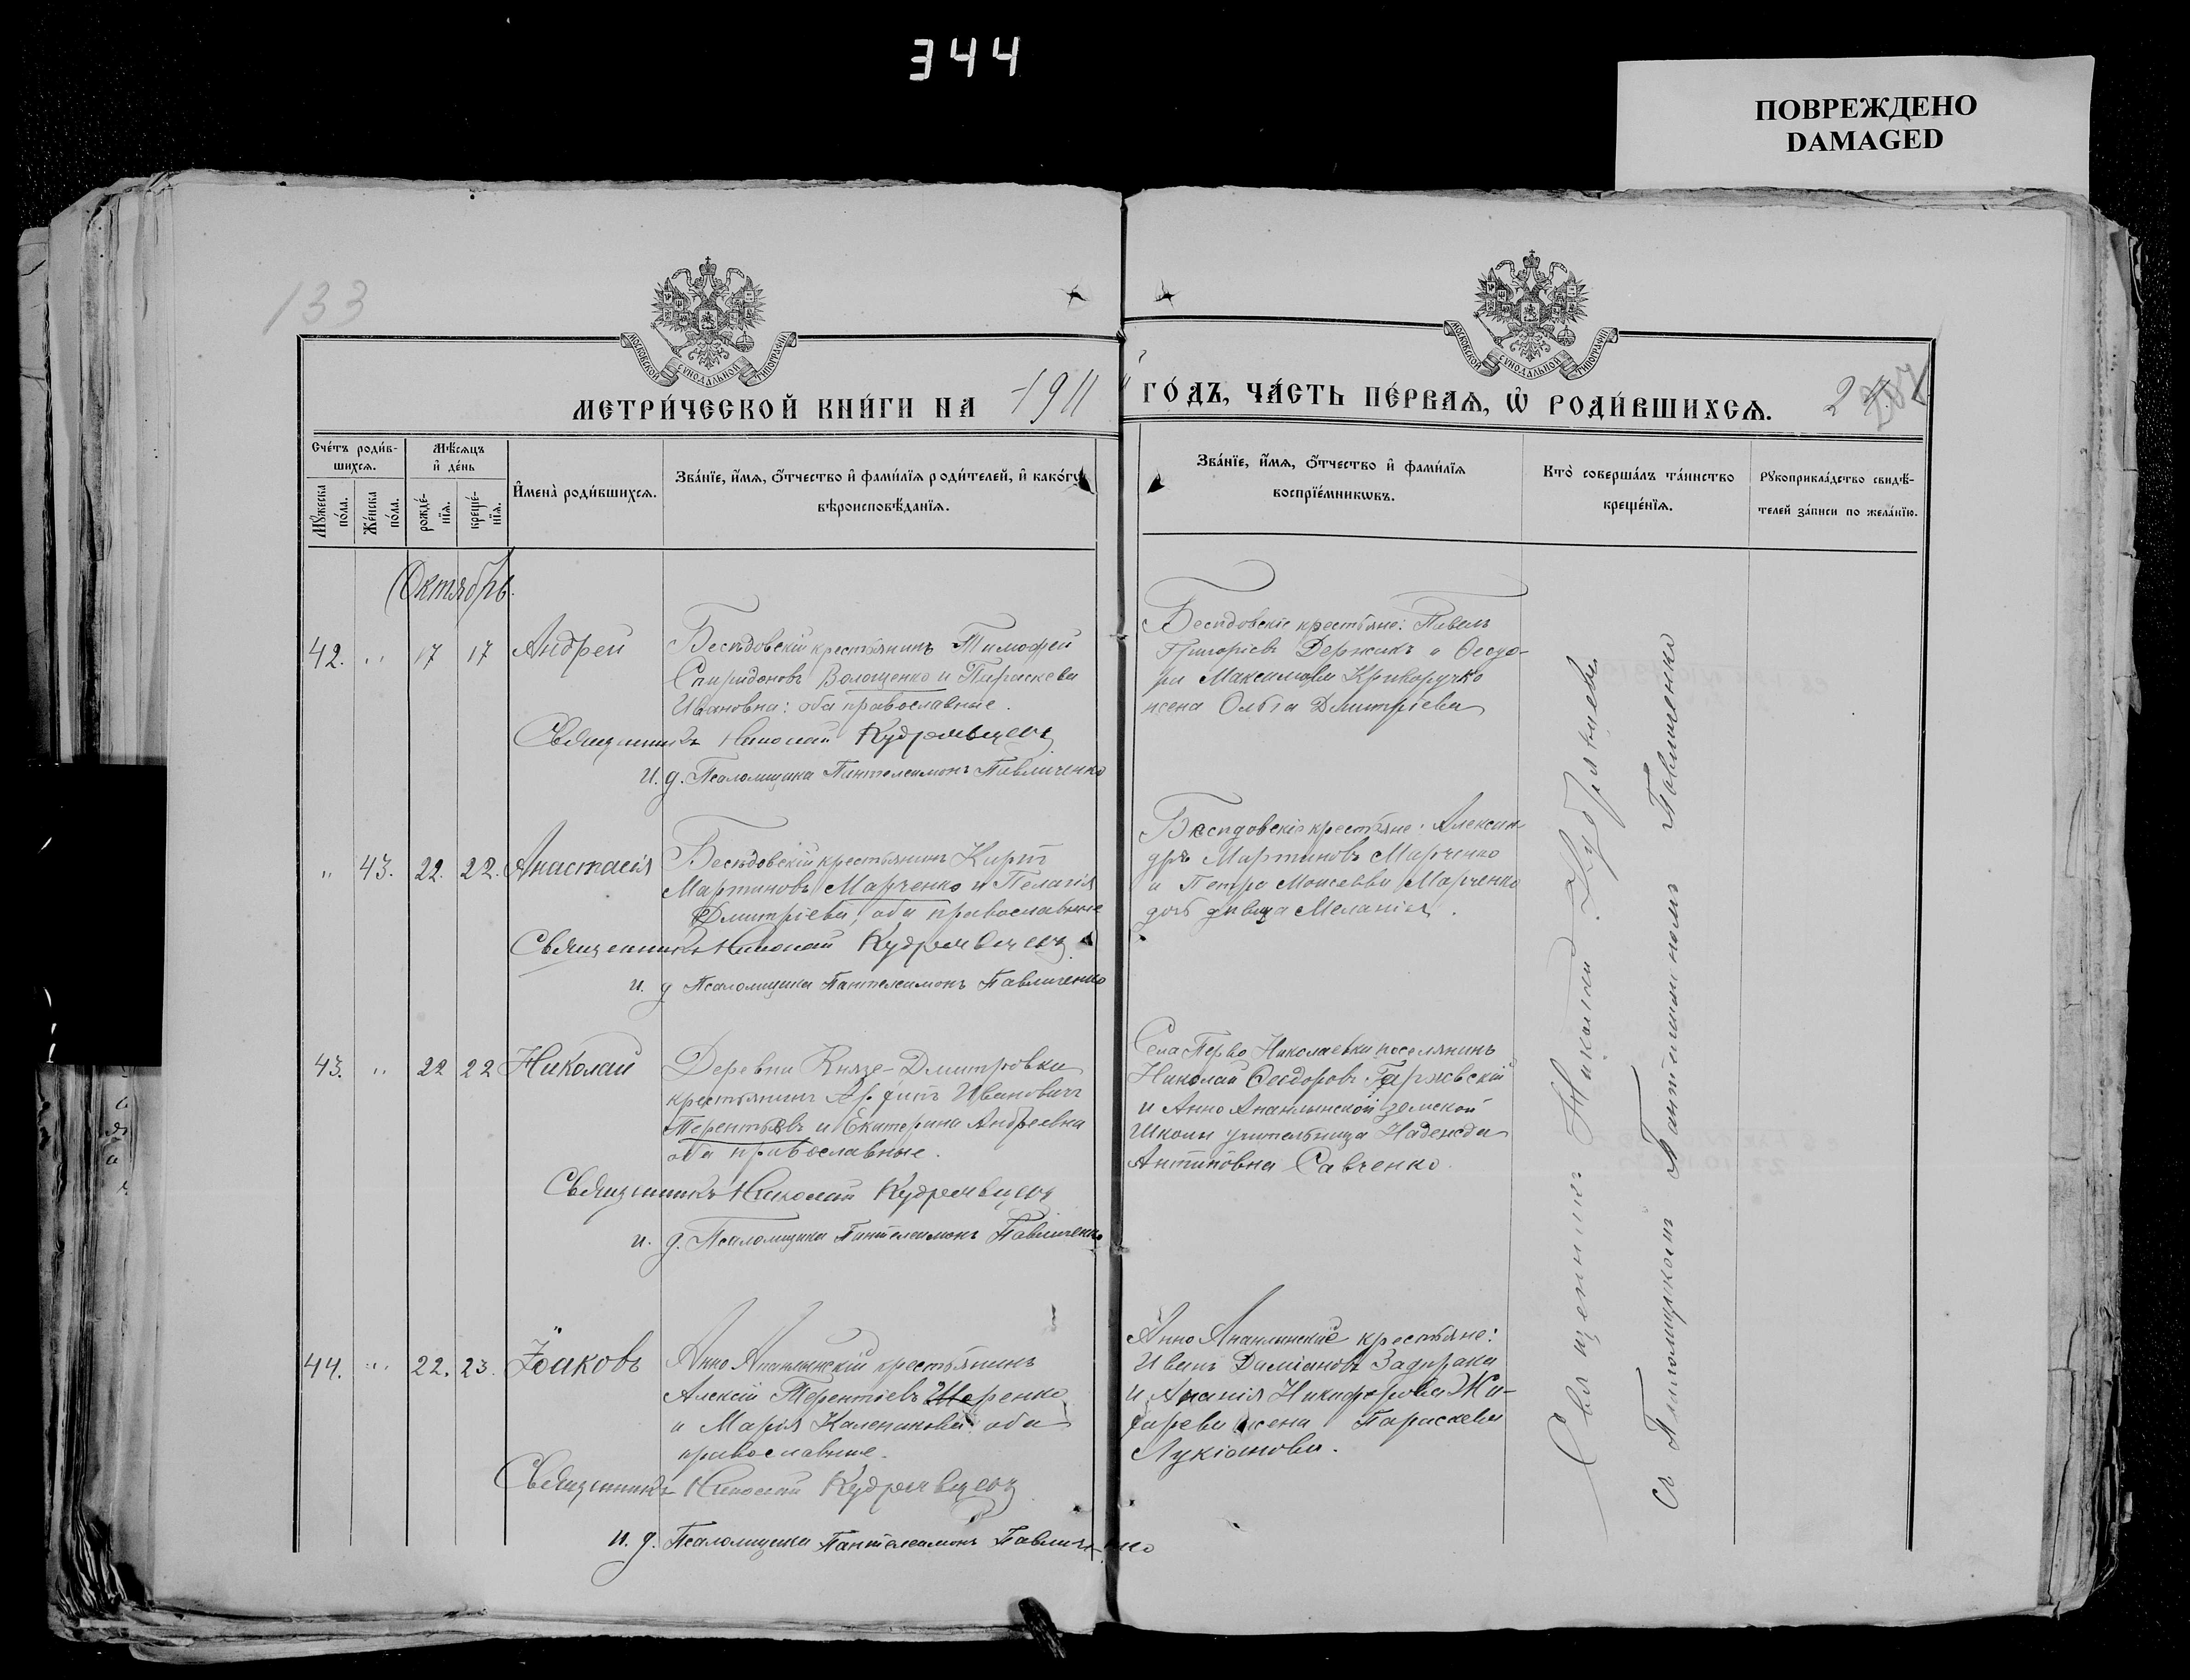 344
ПОВРЕЖДЕНО
DAMAGED
133
МОСКОВСКОЙ СУНОДАЛЬНОЙ ТИПОГРАФІИ
МОСКОВСКОЙ СУНОДАЛЬНОЙ ТИПОГРАФІИ
МЕТРИ́ЧЕСКОЙ КНИ́ГИ НА 1911 ГО́ДЪ, ЧА́СТЬ ПЕ́РВАѦ, Ѿ РОДИ́ВШИХСѦ.
Сче́тъ роди́в-
шихсѧ.
Мꙋ́жеска по́ла.
Же́нска по́ла.
Мѣ́сѧцъ
и҆ де́нь
рожде́-
нїѧ.
креще́-
нїѧ.
И҆мена̀ роди́вшихсѧ.
Зва́нїе, и҆́мѧ, ѻ҆́тчество и҆ фами́лїѧ роди́телей, и҆ како́гѡ
вѣроисповѣ́данїѧ.
Зва́нїе, и҆́мѧ, ѻ҆́тчество и҆ фами́лїѧ
воспрїе́мникѡвъ.
Кто̀ соверша́лъ та́инство
креще́нїѧ.
Рꙋкоприкла́дство свидѣ́-
телей за́писи по жела́нїю.
Октябрь.
42. " 17 17 Андрей
Бесѣдовскій крестьянинъ Тимофей
Спиридоновъ Волощенко и Параскева
Ивановна: оба православные.
Священникъ Николай Кудрявцевъ
и. д. Псаломщика Пантелеимонъ Павличенко
Бесѣдовскіе крестьяне: Павелъ
Григорьевъ Держикъ и Ѳеодо-
ра Максимова Криворучко
жена Ольга Дмитріева
" 43. 22. 22. Анастасія
Бесѣдовскій крестьянинъ
Мартиновъ Марченко и Пелагія
Дмитріева, оба православные
Священникъ Николай Кудрявцевъ
и. д. Псаломщика Пантелеимонъ Павличенко
Бесѣдовскіе крестьяне: Алексан
дръ Мартиновъ Марченко
и Петра Моисеева Марченко
дочь дѣвица Меланія.
43. " 22 22 Николай
Деревни Князе-Дмитровки
крестьянинъ Ивановичъ
Терентьевъ и Екатерина Андреевна
оба православные.
Священникъ Николай Кудрявцевъ
и. д. Псаломщика Пантелеимонъ Павличенко
Села Перво Николаевки поселянинъ
Николай Ѳеодоровъ
и Анно Апанлынской земской
Школы учительница Надежда
Антиповна Савченко.
44. " 22. 23. Іаковъ
Анно Апанлынскій крестьянинъ
Алексій Терентіевъ Шеренко
и Марія Каленикова оба
православные.
Священникъ Николай Кудрявцевъ
и. д. Псаломщика Пантелеимонъ Павличенко
Анно Апанлинскіе крестьяне:
Иванъ Даміановъ Задирака
и Ананія Никифорова
жена Параскева
Лукіанова.
Священникъ Николай Кудрявцевъ
съ Псаломщикомъ Пантелеимономъ Павличенко